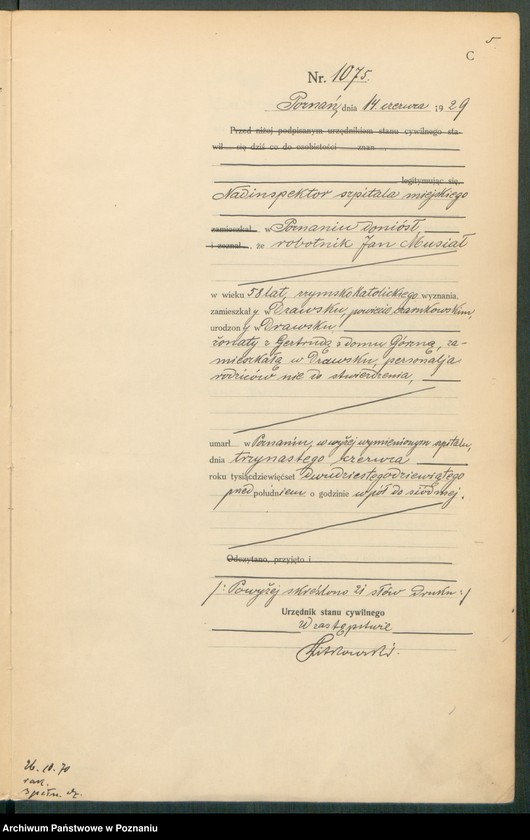 5
C
Nr. 1075.
Poznań, dnia 14 czerwca 1929
Przed niżej podpisanym urzędnikiem stanu cywilnego sta-
wił się dziś co do osobistości znan
legitymując się
Nadinspektor szpitala miejskiego
zamieszkał w Poznaniu doniósł,
i zeznał, że robotnik Jan Musiał
w wieku 58 lat, rzymsko katolickiego wyznania,
zamieszkały w Drawsku, powiecie czarnkowskim,
urodzony w Drawsku,
żonaty z Gertrudą z domu Górną, za-
mieszkałą w Drawsku, personalja
rodziców nie do stwierdzenia,
umarł w Poznaniu, w wyżej wymienionym szpitalu,
dnia trzynastego czerwca
roku tysiącdziewięćset dwudziestegodziewiątego
przed południem o godzinie wpół do siódmej.
Odczytano, przyjęto i
/: Powyżej skreślono 21 słów druku :/
Urzędnik stanu cywilnego
W zastępstwie
26. 10. 70
Archiwum Państwowe w Poznaniu